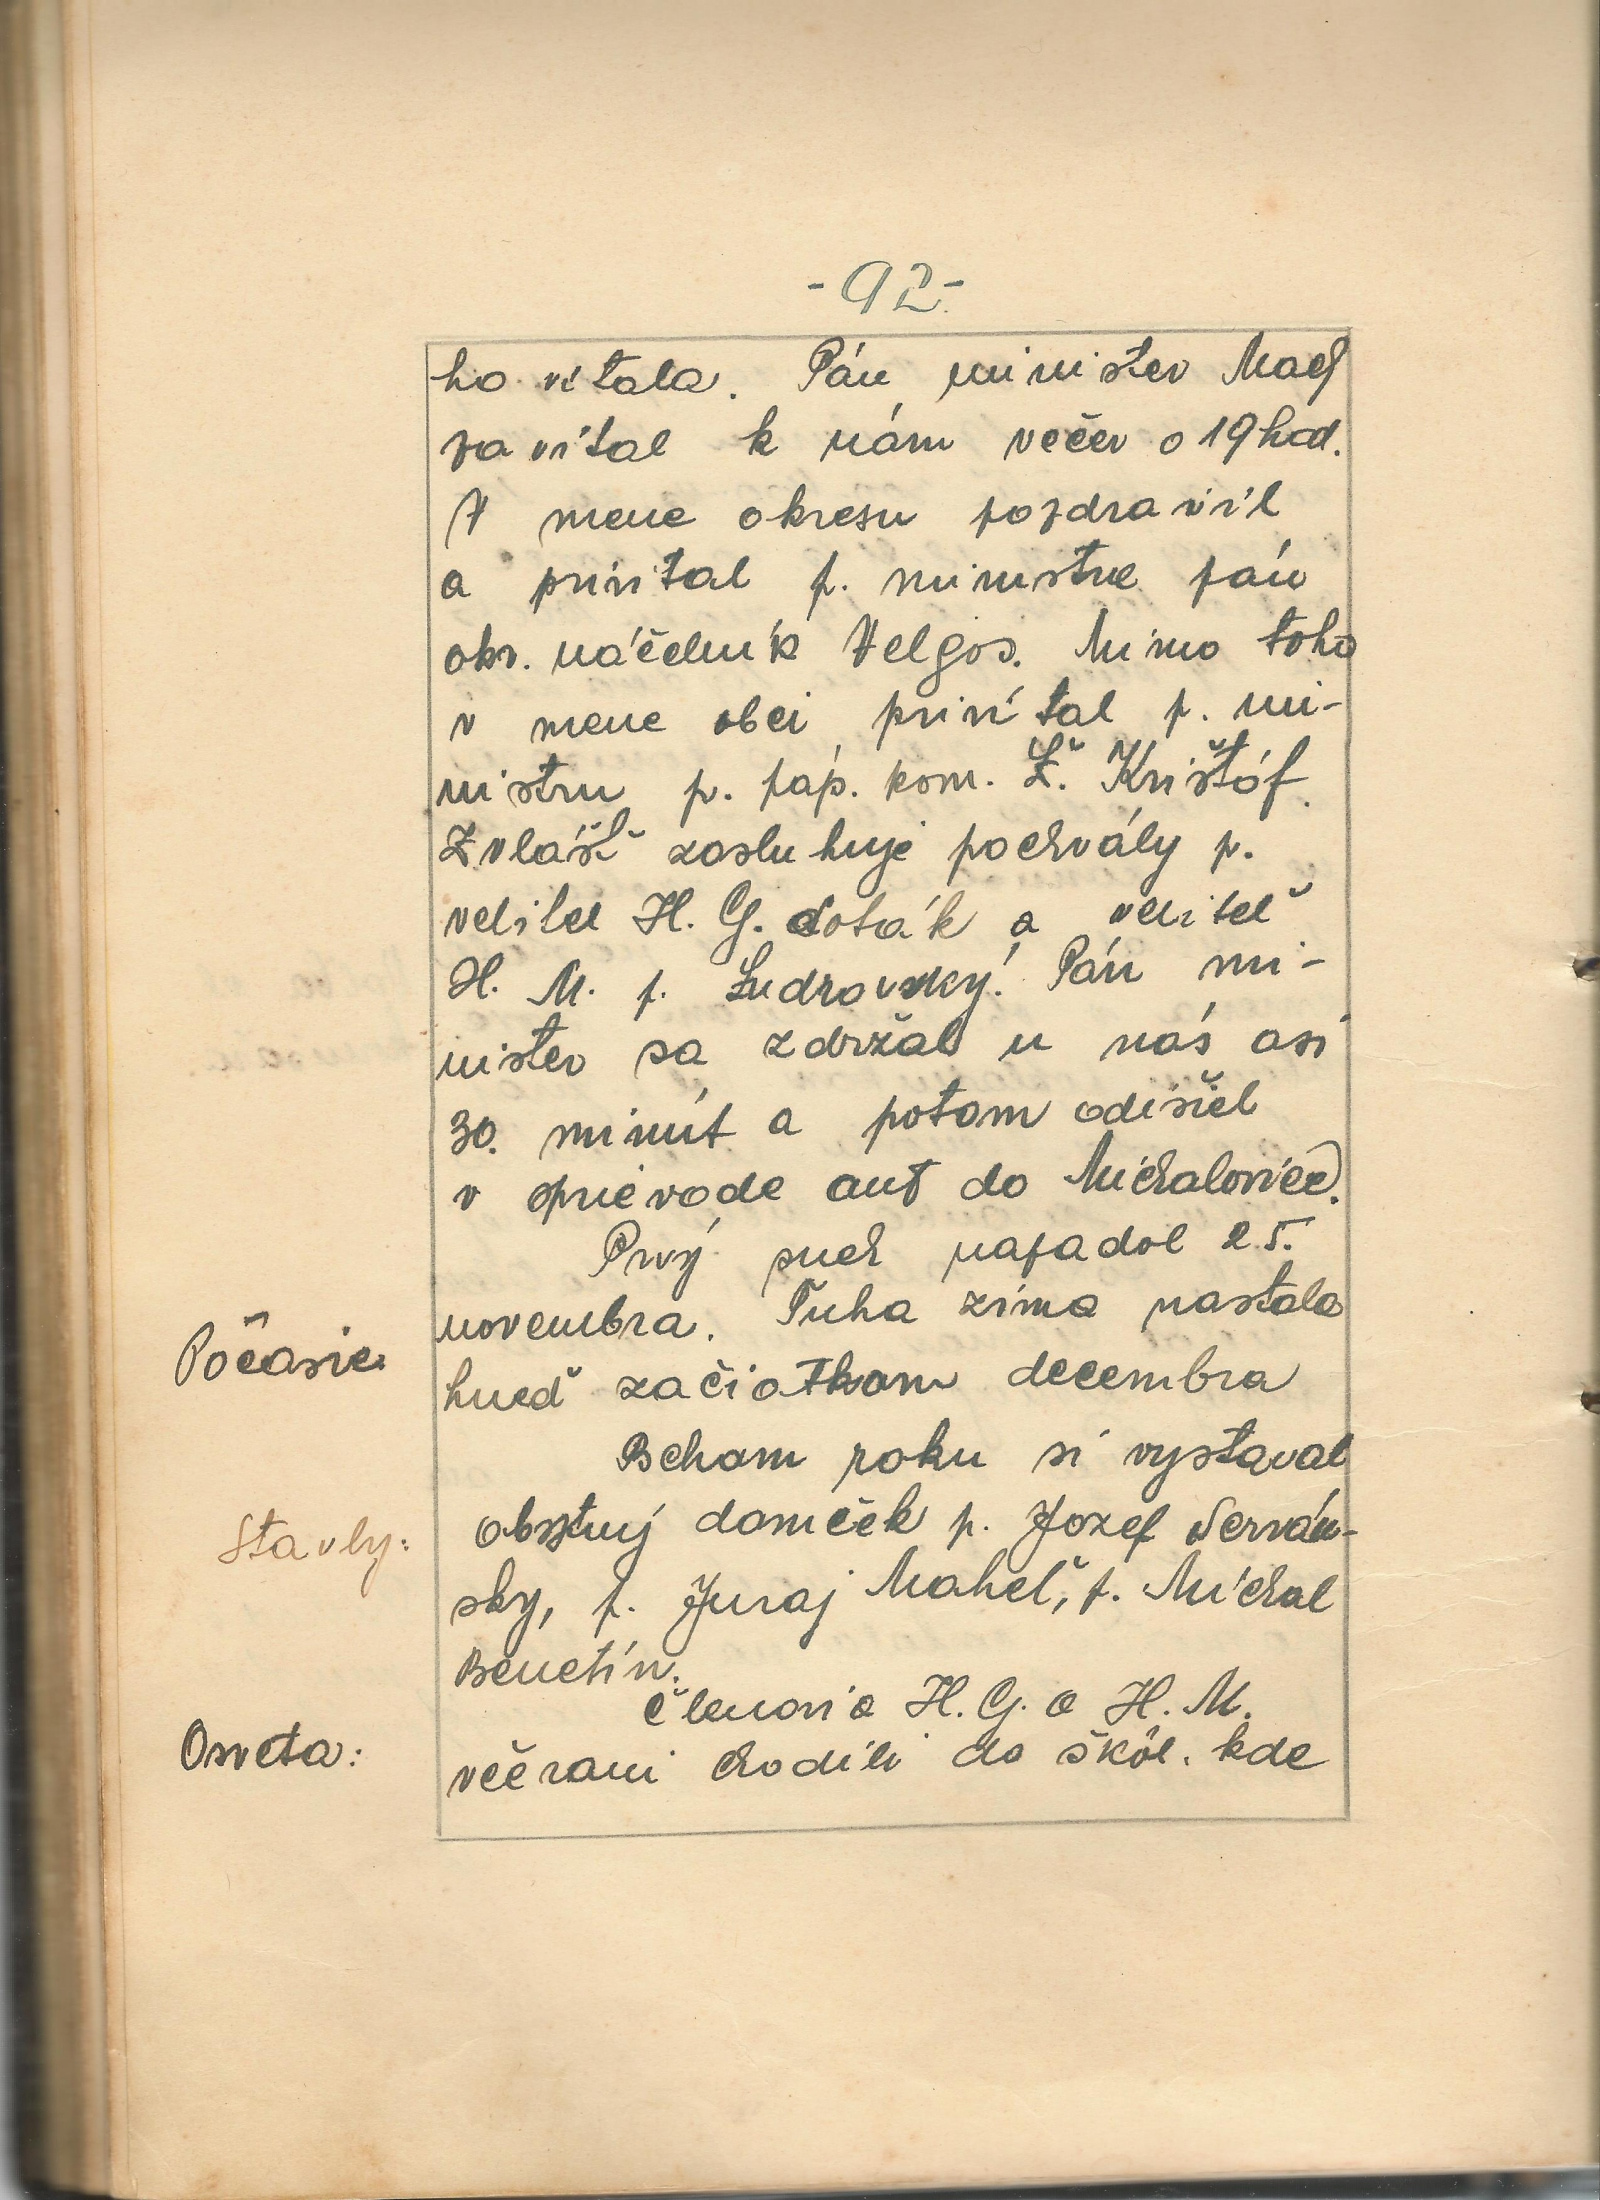 -92-
ho vítala. Pán minister Mach
zavítal k nám večer o 19 hod.
V mene okresu pozdravil
a privítal p. ministra pán
okr. náčelník Velgos. Mimo toho
v mene obci privítal p. mi-
nistru p. páp. kom. Ľ. Krištóf.
Zvlášť zasluhuje pochvály p.
veliteľ H. G. Soták a veliteľ
H. M. p. Ľudrovský. Pán mi-
nister sa zdržal u nás asi
30. minút a potom odišiel
v sprievode aut do Michaloviec.
Prvý sneh napadol 25.
Počasie
novembra. Tuha zima nastala
hneď začiatkom decembra
Behom roku si vystaval
Stavby:
obytný domček p. Jozef Serván-
sky, p. Juraj Maheľ, p. Michal
Benetín.
Členovia H. G. a H. M.
Osveta:
večerami chodili do škôl. kde